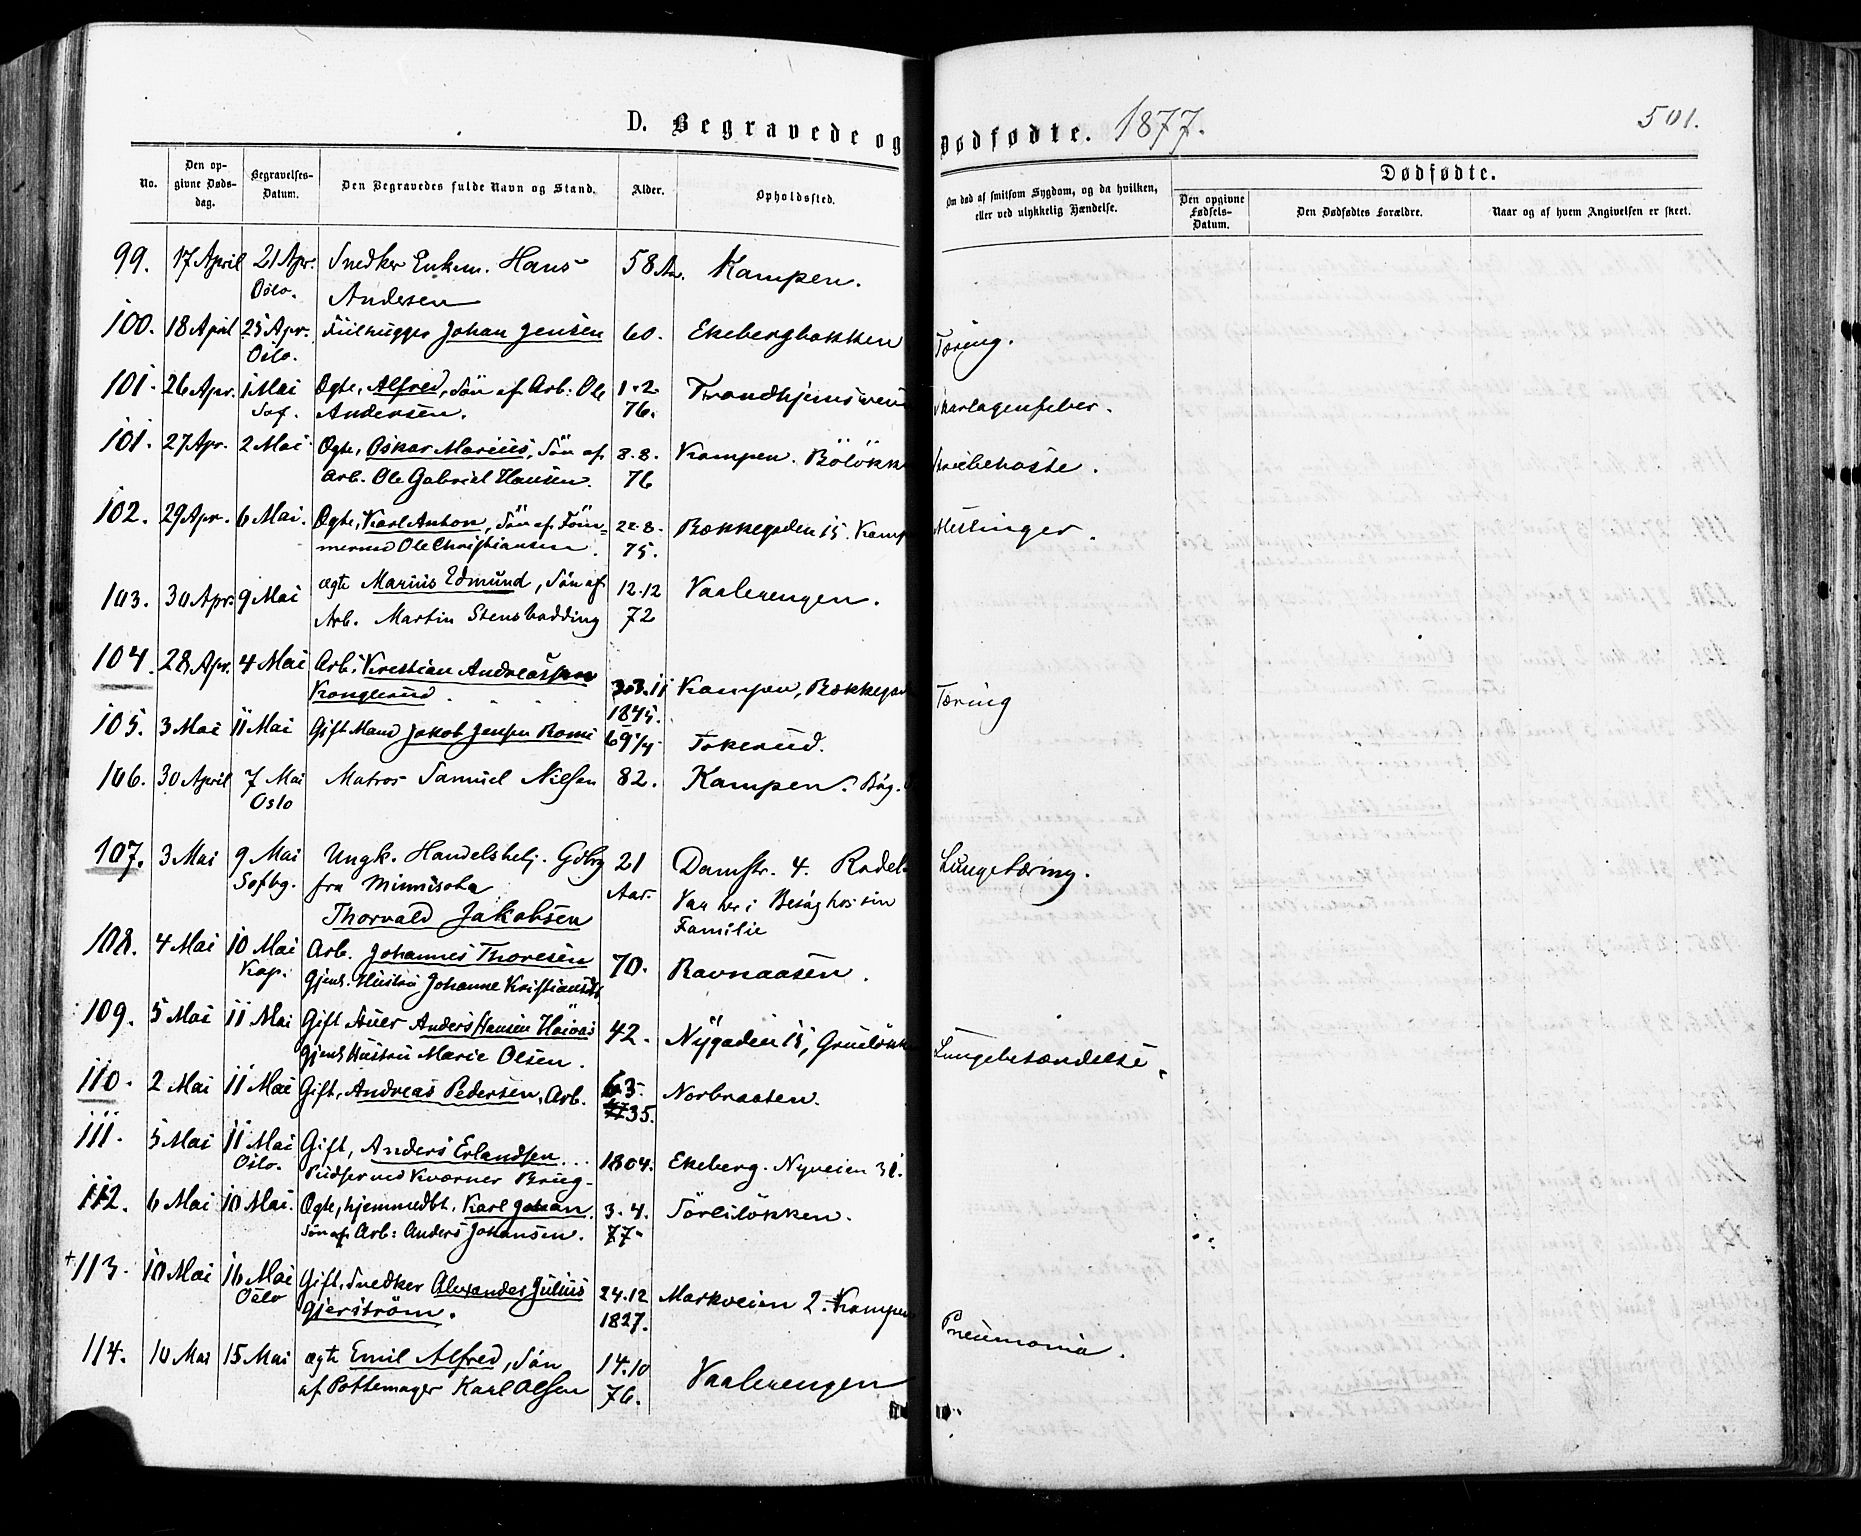 D. Begravede og Dødfødte. 1877. 501.
No.
Den opgivne Døds-dag.
Begravelses-Datum.
Den Begravedes fulde Navn og Stand.
Alder.
Opholdssted.
Om død af smitsom Sygdom, og da hvilken, eller ved ulykkelig Hændelse.
Dødfødte.
Den opgivne Fødsels-Datum.
Den Dødfødtes Forældre.
Naar og af hvem Angivelsen er skeet.
99. 17 April 21 Apr. Snedker Enkm. Hans 58 Aar. Kampen.
Oslo. Andersen
100. 18 April 25 Apr. Johan Jensen 60. Ekebergbakken Tæring.
Oslo.
101. 26 Apr. 1 Mai Ægte, Alfred, Søn af Arb: Ole 1-2 Skarlagenfeber.
Sof. Andersen. 76.
101. 27 Apr. 2 Mai Ægte, Oskar Marius, Søn af 8.8. Kampen. Bölökk Strubehoste.
Arb. Ole Gabriel Hansen. 76
102. 29 Apr. 6 Mai. Ægte, Karl Anton, Søn af Töm= 22.8. Bækkegaden 15. Kamp Meslinger.
mermd Ole Christiansen. 75.
103. 30 Apr. 9 Mai ægte Marius Edmund, Søn af 12.12 Vaalerengen.
Arb. Martin Stensbadding 72
104. 28 Apr. 4 Mai Arb. Kristian Andreassen 3.11 Kampen, Bækkega Tæring
Konglerud. 1845.
105. 3 Mai 11 Mai Gift Mand Jakob Jensen 69 1/4 Tokerud.
106. 30 April 7 Mai Matros Samuel Nilsen 82. Kampen. Bög.
Oslo
107. 3 Mai 9 Mai Ungk. Handelsbetj. 21 Damstr. 4. Rodel Lungetæring.
Sofbg. fra Minnisota Aar. Var her i Besøg hos sin
Thorvald Jakobsen Familie
108. 4 Mai 10 Mai Arb. Johannes Thoresen 70. Ravnaasen.
Kap. Gjenl. Hustru Johanne Kristiansdt
109. 5 Mai 11 Mai Gift Anders Hansen 42. Nygaden 15, Gruelökk Lungebetændelse.
Gjenl Hustru Marie Olsen.
110. 2 Mai 11 Mai Gift, Andreas Pedersen, Arb. 6.3. Norbraaten.
35.
111. 5 Mai 11 Mai Gift, Anders Erlandsen 1804. Ekeberg. Nyveien 31.
Oslo. Pudser ved Kværner Brug.
112. 6 Mai 10 Mai. Ægte, hjemmedbt. Karl Johan 3.4. Sörlilökken.
Søn af Arb: Anders Johansen. 77.
+113. 10 Mai 16 Mai Gift, Snedker Alexander Julius 24.12 Markveien 2. Kampen
Oslo Gjerström. 1827. Pneumonia.
114. 10 Mai 15 Mai ægte Emil Alfred, Søn 14.10 Vaalerengen
af Pottemager Karl Olsen 76.